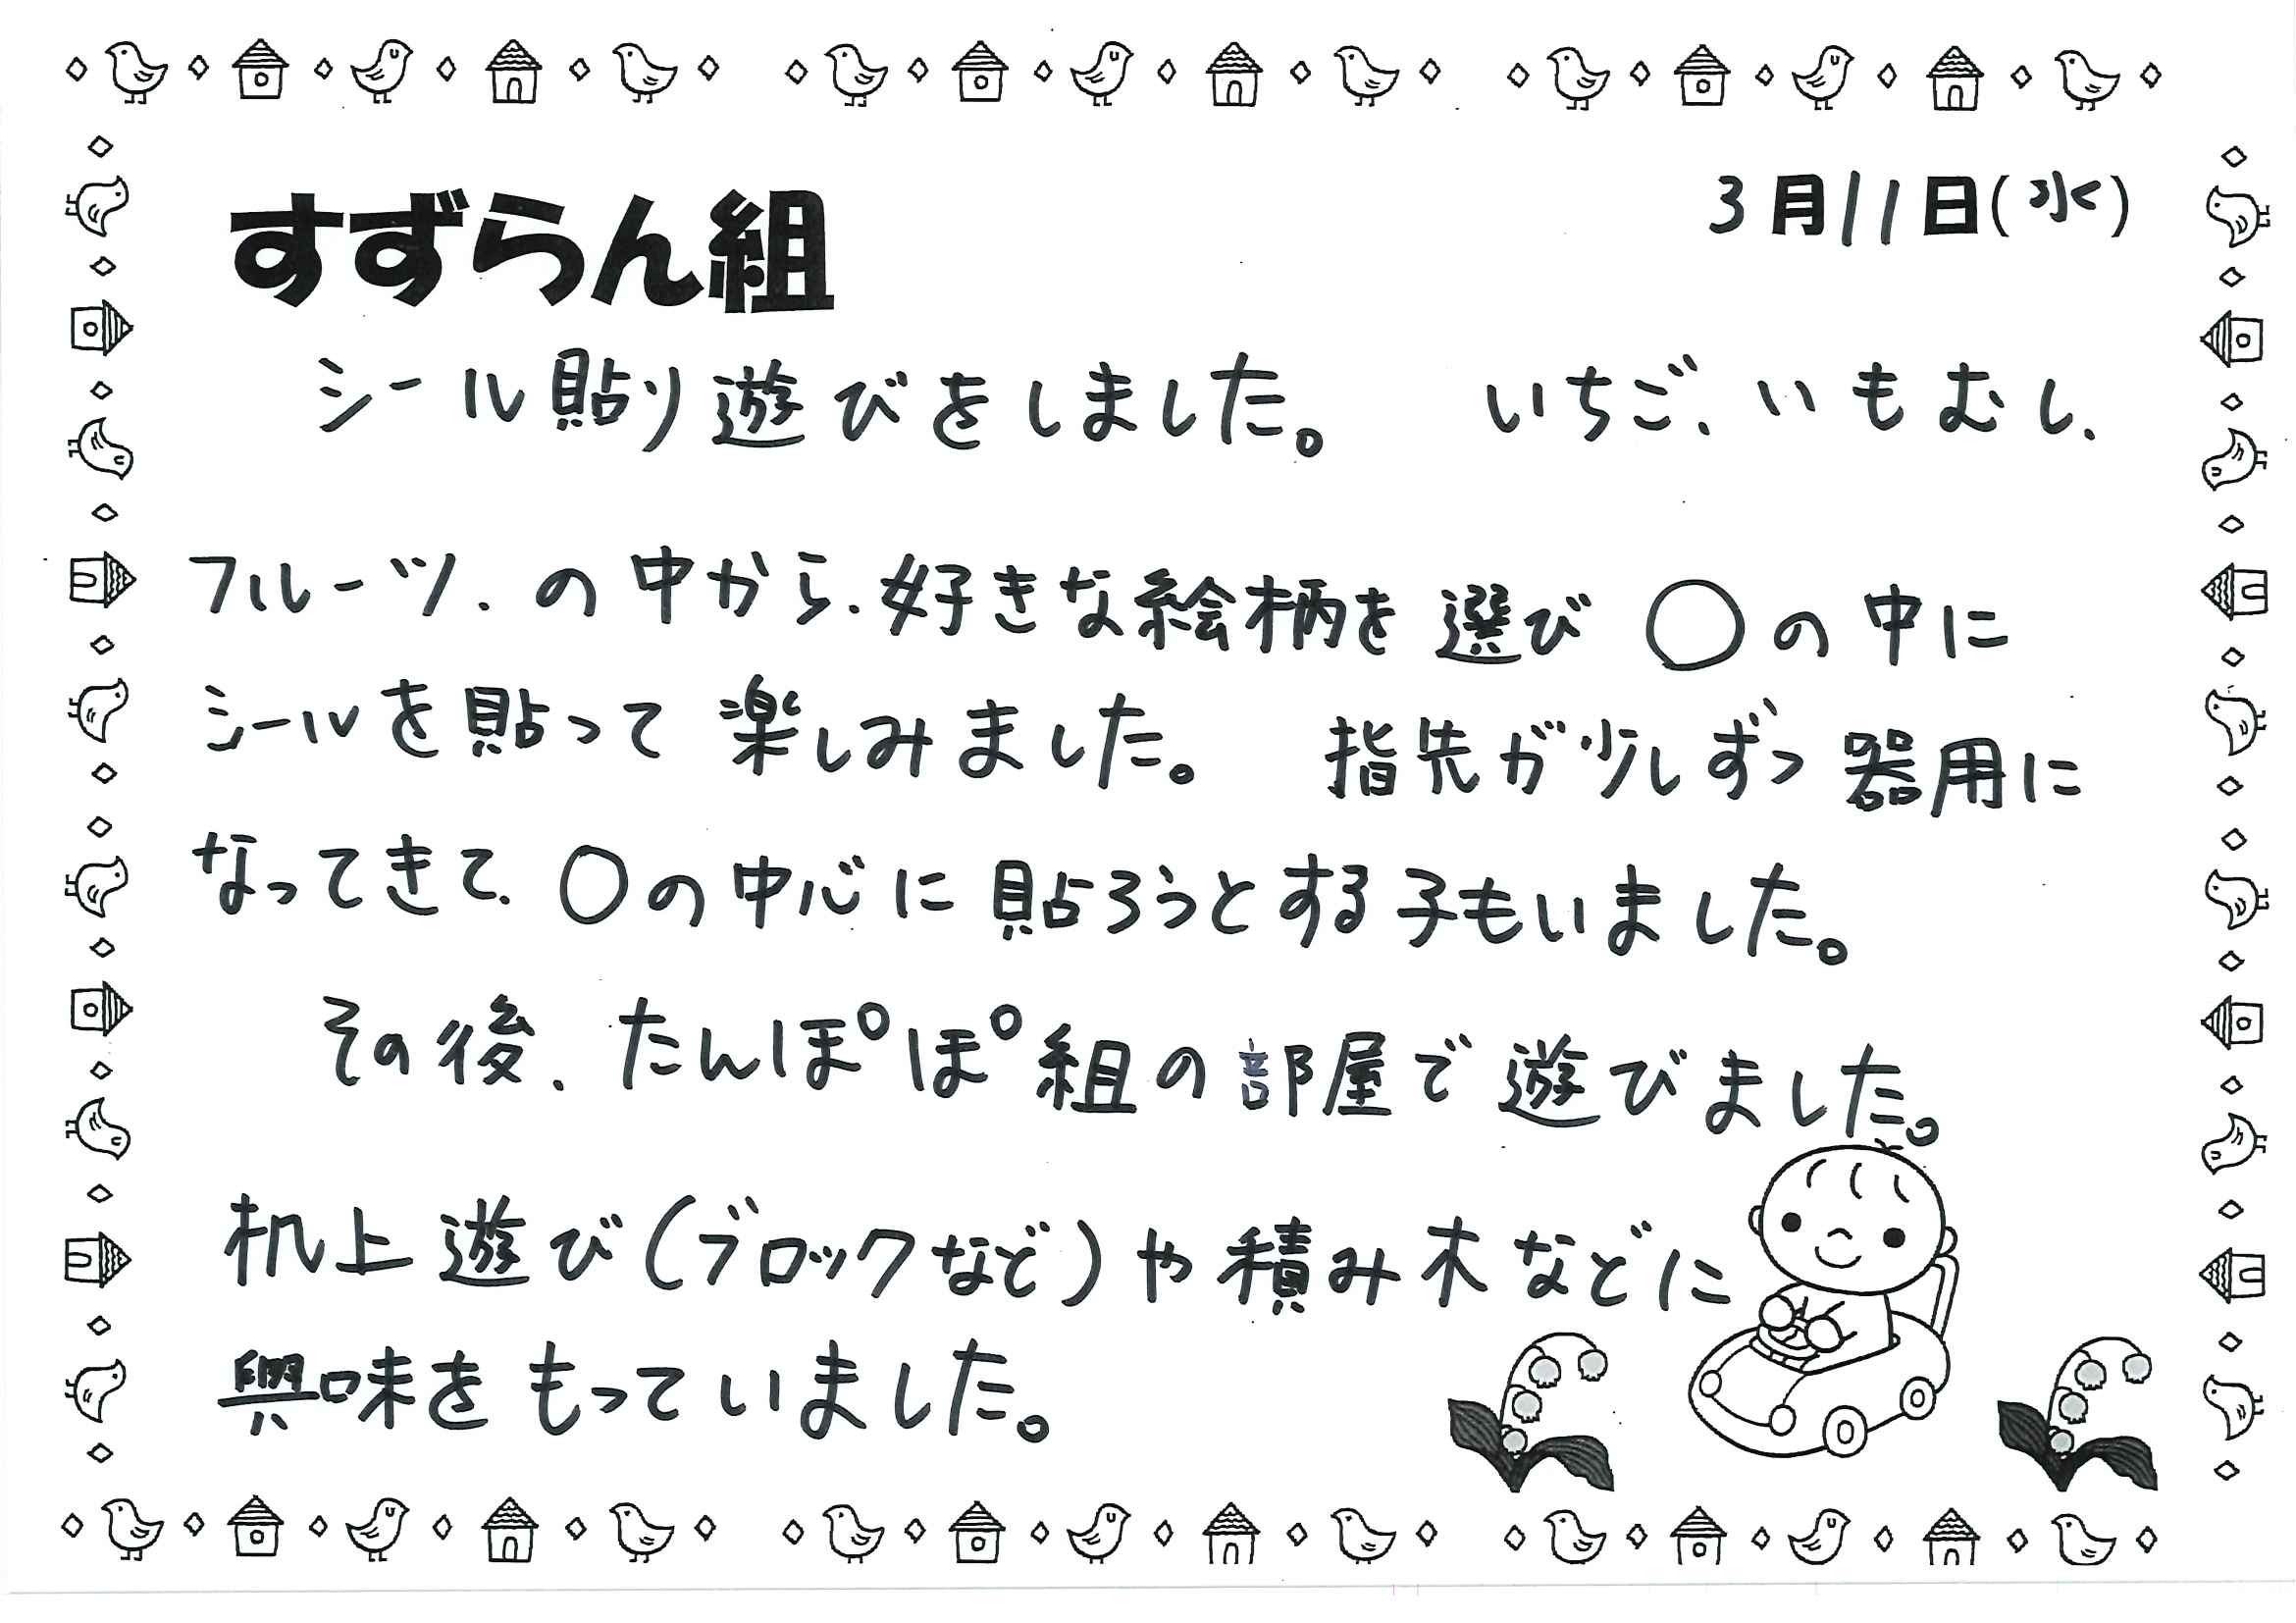 3月11日(水)
すずらん組
シール貼り遊びをしました。 いちご、いもむし、
フルーツ、の中から、好きな絵柄を選び ○の中に
シールを貼って楽しみました。 指先が少しずつ器用に
なってきて、○の中心に貼ろうとする子もいました。
その後、たんぽぽ組の部屋で遊びました。
机上遊び(ブロックなど)や積み木などに
興味をもっていました。